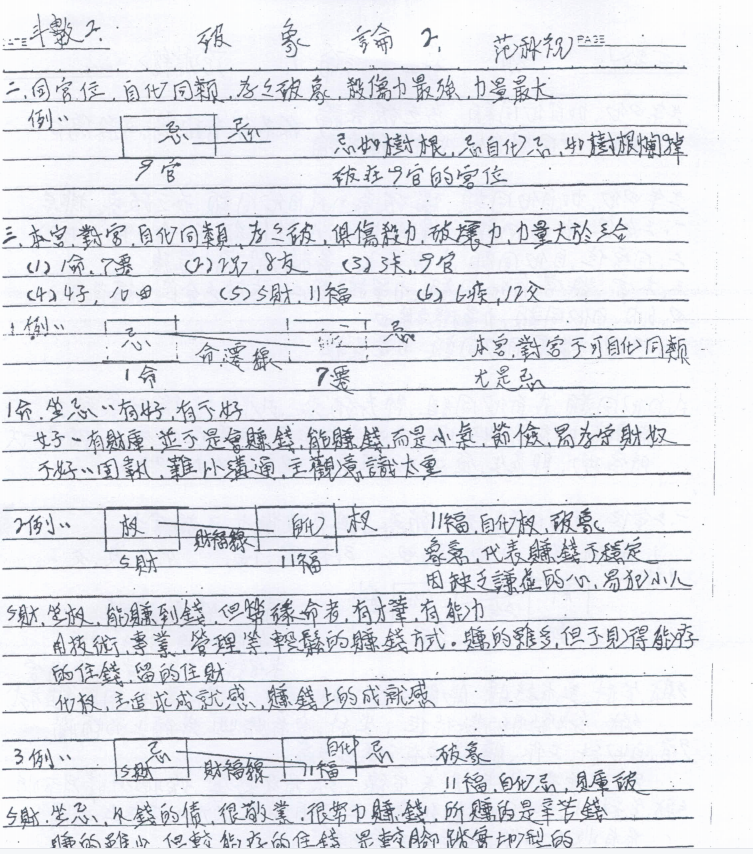 斗數2. 破 象 論 2. 范秋祝 PAGE
二.同宮位,自化同類,為之破象,殺傷力最強,力量最大
例:
忌 忌 忌如樹根,忌自化忌,如樹根爛掉
9官 破在9官的宮位
三.本宮,對宮,自化同類,為之破,俱傷殺力,破壞力,力量大於三合
(1)1命,7遷 (2)2兄,8友 (3)3夫,9官
(4)4子,10田 (5)5財,11福 (6)6疾,12父
1例: 忌 命遷線 忌 本宮,對宮不可自化同類
1命 7遷 尤是忌
1命.坐忌:有好,有不好
好:有財庫,並不是會賺錢,能賺錢,而是小氣,節儉,易為守財奴
不好:固執,難以溝通,主觀意識太重
2例: 权 財福線 自化 权 11福,自化权,破象
5財 11福 象意,代表賺錢不穩定
因缺乏謙虛的心,易犯小人
5財.坐权,能賺到錢,但勞碌命者,有才華,有能力
用技術,專業,管理等,輕鬆的賺錢方式。賺的雖多,但不見得能存
的住錢,留的住財
化权,主追求成就感,賺錢上的成就感
3例: 忌 自化 忌 破象
5財 財福線 11福 11福,自化忌,財庫破
5財.坐忌,欠錢的債,很敬業,很努力賺錢,所賺的是辛苦錢
賺的雖少,但較能存的住錢,是較腳踏實地型的